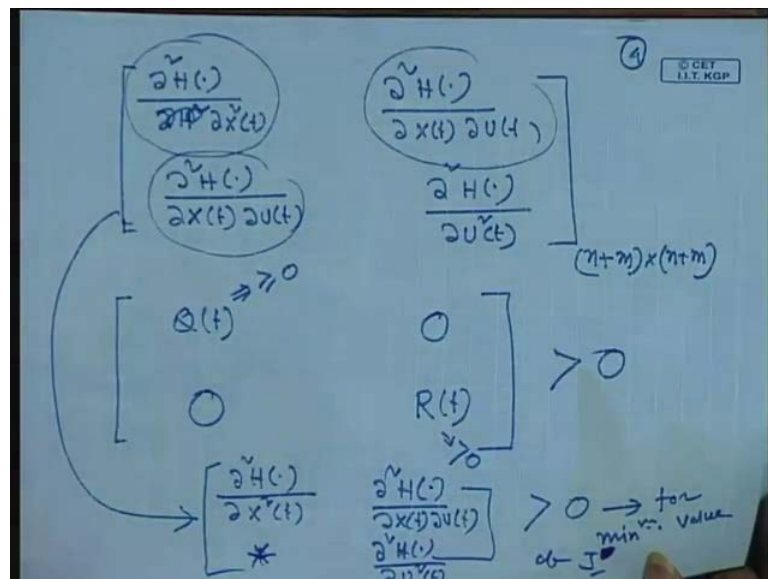 ④
© CET
I.I.T. KGP
∂²H(·) / ∂x²(t)    ∂²H(·) / ∂x(t) ∂u(t)
∂²H(·) / ∂x(t) ∂u(t)    ∂²H(·) / ∂u²(t)
(n+m)×(n+m)
Q(t) ⇒ ≥ 0    0
0    R(t)    > 0
> 0
∂²H(·) / ∂x²(t)    ∂²H(·) / ∂x(t) ∂u(t)    > 0 → for
*    ∂²H(·) / ∂u²(t)    min^m. value
of J